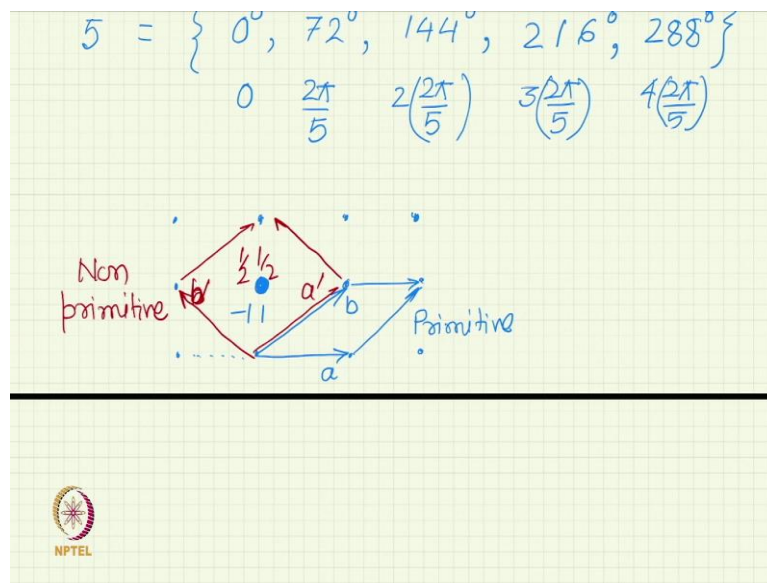 5 = { 0°, 72°, 144°, 216°, 288° }
0 2π/5 2(2π/5) 3(2π/5) 4(2π/5)
Non
primitive
b'
1/2 1/2
-11
a'
b
Primitive
a
NPTEL